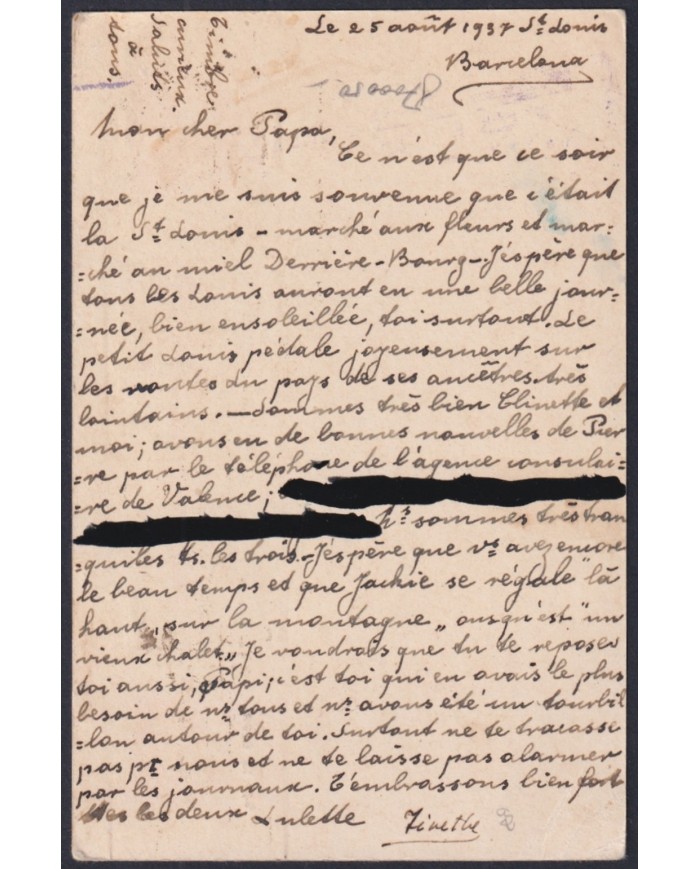 Timbre
curieux.
Saluts
à
tous.
Le 25 août 1937 St Louis
Barcelona
Mon cher Papa,
Ce n'est que ce soir
que je me suis souvenue que c'était
la St Louis - marché aux fleurs et mar=
=ché au miel Derrière-Bourg-. J'éspère que
tous les Louis auront eu une belle jour=
=née, bien ensoleillée, toi surtout. Le
petit Louis pédale joyeusement sur
les routes du pays de ses ancêtres très
lointains. — Sommes très bien Clinette et
moi; avons eu de bonnes nouvelles de Pier
=re par le téléphone de l'agence consulai=
=re de Valence;
ns sommes très tran
=quiles ts. les trois. - J'éspère que vs avez encore
le beau temps et que Jackie se régale "là
haut, sur la montagne„ ousqu'est "un
vieux chalet„ Je voudrais que tu te reposes
toi aussi, Pápi, c'est toi qui en avais le plus
besoin de ns tous et ns avons été un tourbil
=lon autour de toi. Surtout ne te tracasse
pas pr nous et ne te laisse pas alarmer
par les journaux. T'embrassons bien fort
ttes les deux Lulette